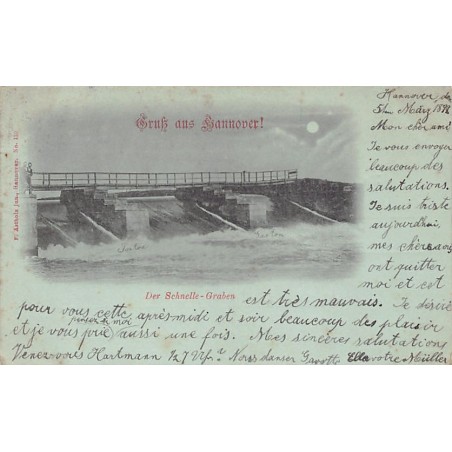 Gruß aus Hannover!
Hannover, de
5ten März 189
Mon cher ami!
Je vous envoyer
beaucoup des
salutations.
Je suis triste
aujourdhui,
mes chère
ont quitter
moi et cet
Der Schnelle-Graben
est très mauvais. Je désire
pour vous cette après-midi et soir beaucoup des plaisir
et je vous prie penser à moi aussi une fois. Mes sincères salutations
Venez-vous Hartmann 1/2 7 Uhr? danser Gavotte votre Müller